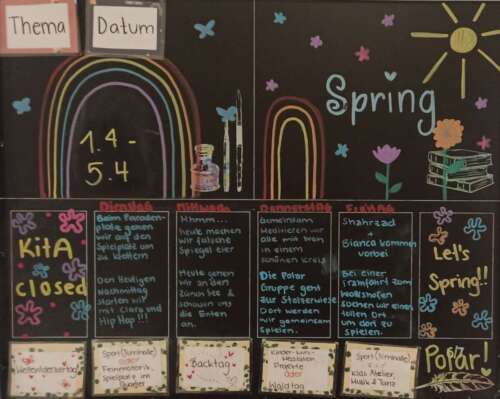 Thema
Datum
1.4 -
5.4
Spring
Dienstag
Mittwoch
Donnerstag
Freitag
KitA
closed
Beim Paradeplatz
gehen
wir auf den
Spielplatz um
zu klettern
Den heutigen
Nachmittag
starten wir
mit Clara und
Hip Hop!!!
Hmmm...
heute machen
wir
Spiegel eier
Heute gehen
wir an den
Zürich See &
schauen uns
die Enten
an.
Gemeinsam
Meditieren wir
alle mit
in einem
schönen kreis
Die Polar
Gruppe geht
aus
Dort werden
wir gemeinsam
spielen.
Shahrzad
+
Bianca kommen
vorbei
Bei einer
Tramfahrt zum
suchen wir einen
tollen Ort
um dort zu
spielen.
Let's
Spring!!
Sport (Turnhalle)
oder
Feinmotorik,
Spielplatz im
Quartier
Backtag
Kinder-
Meditation
Projekte
oder
Waldtag
Sport (Turnhalle)
oder
Kids Atelier,
Musik & Tanz
Polar!